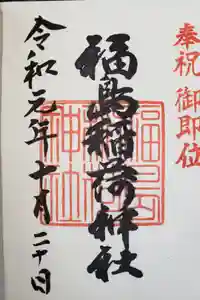 奉祝 御即位
福島稲荷神社
福島
神社
令和元年十月二十日